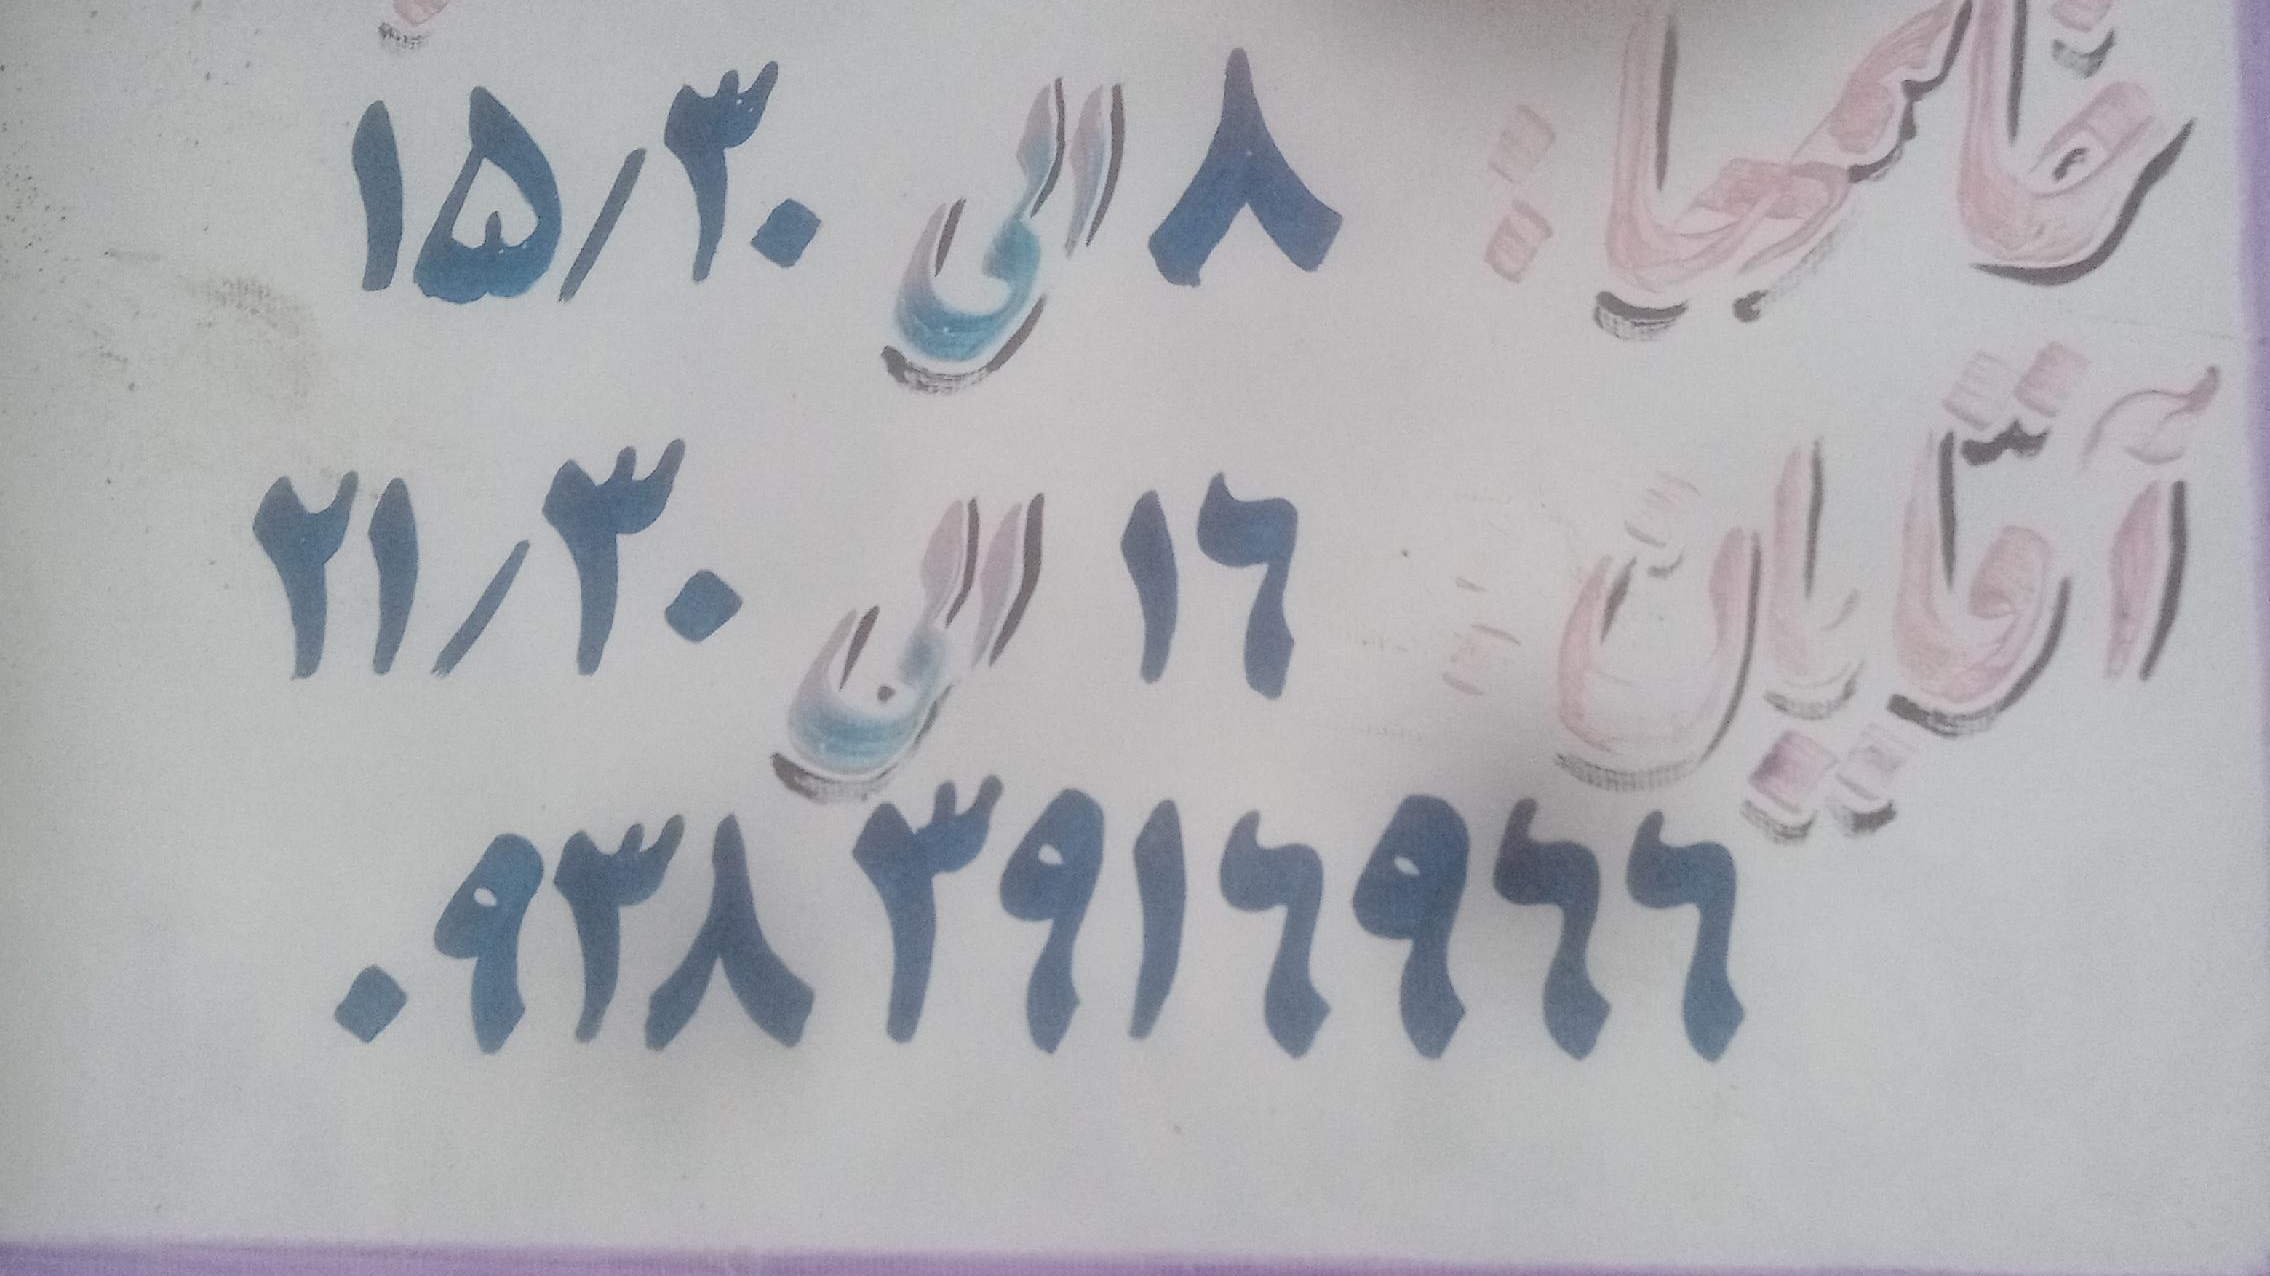 خانمها: ۸ الی ۱۵/۳۰
آقایان: ۱۶ الی ۲۱/۳۰
۰۹۳۸ ۳۹۱۶۹۶۶